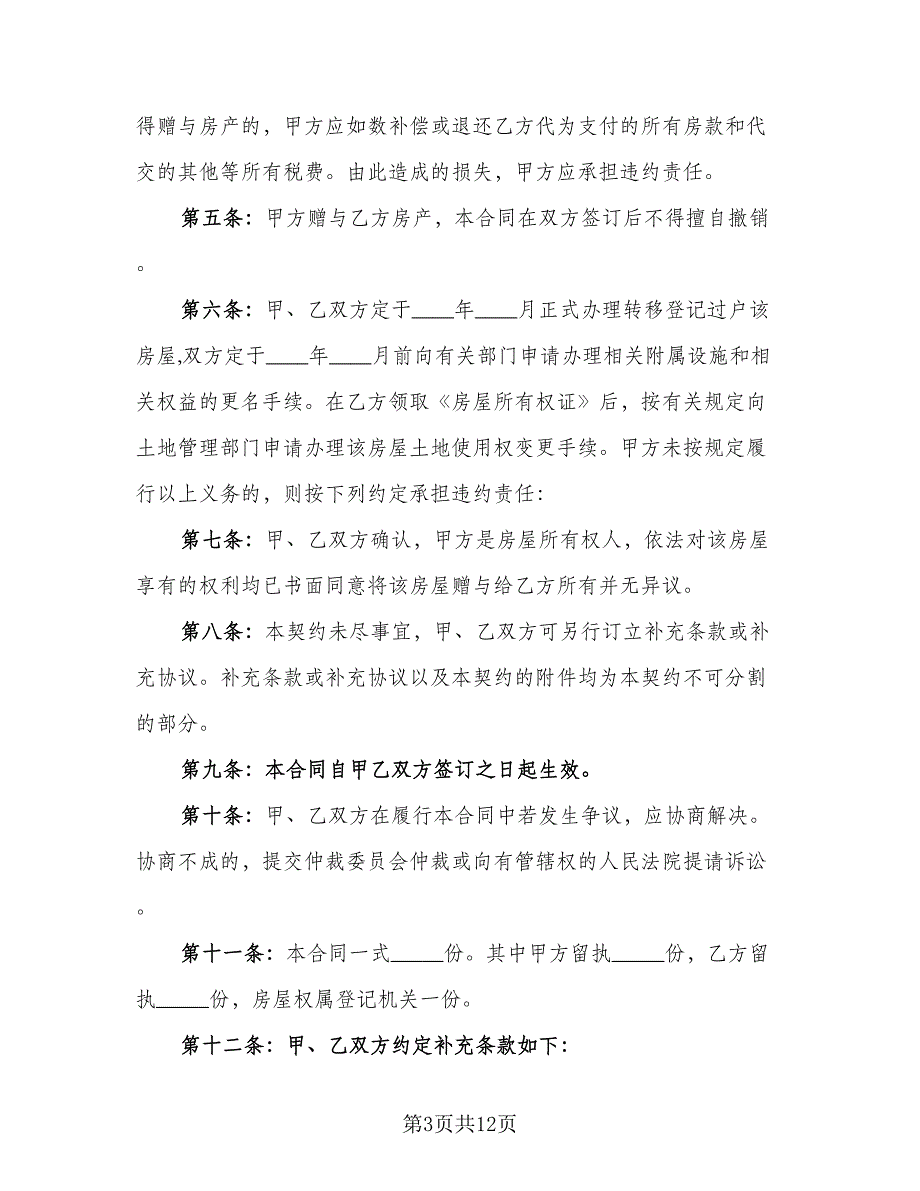 得赠与房产的，甲方应如数补偿或退还乙方代为支付的所有房款和代
交的其他等所有税费。由此造成的损失，甲方应承担违约责任。
第五条：甲方赠与乙方房产，本合同在双方签订后不得擅自撤销
。
第六条：甲、乙双方定于____年____月正式办理转移登记过户该
房屋,双方定于____年____月前向有关部门申请办理相关附属设施和相
关权益的更名手续。在乙方领取《房屋所有权证》后，按有关规定向
土地管理部门申请办理该房屋土地使用权变更手续。甲方未按规定履
行以上义务的，则按下列约定承担违约责任：
第七条：甲、乙双方确认，甲方是房屋所有权人，依法对该房屋
享有的权利均已书面同意将该房屋赠与给乙方所有并无异议。
第八条：本契约未尽事宜，甲、乙双方可另行订立补充条款或补
充协议。补充条款或补充协议以及本契约的附件均为本契约不可分割
的部分。
第九条：本合同自甲乙双方签订之日起生效。
第十条：甲、乙双方在履行本合同中若发生争议，应协商解决。
协商不成的，提交仲裁委员会仲裁或向有管辖权的人民法院提请诉讼
。
第十一条：本合同一式_____份。其中甲方留执_____份，乙方留
执_____份，房屋权属登记机关一份。
第十二条：甲、乙双方约定补充条款如下：
第3页共12页